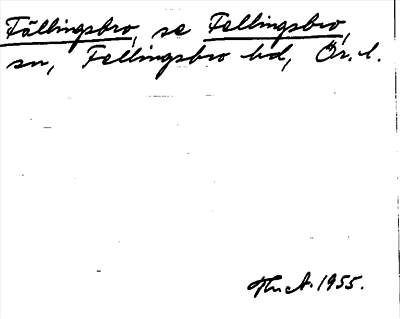 Fällingsbro, se Fellingsbro,
sn, Fellingsbro hd, Ör. l.
1955.